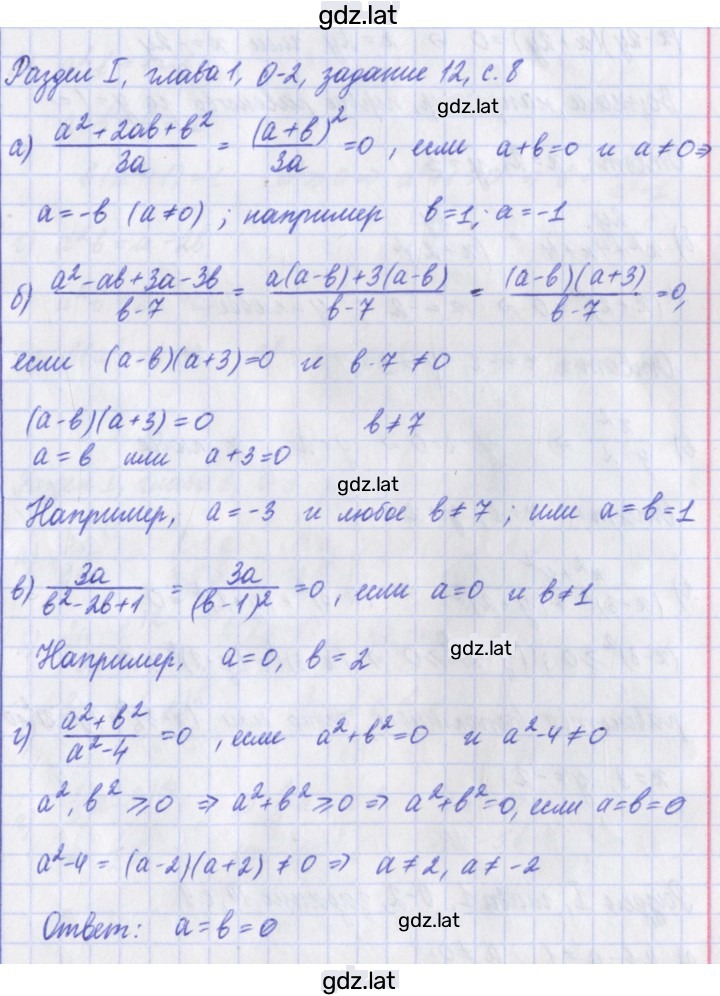 gdz.lat
Раздел I, глава 1, О-2, задание 12, с. 8
gdz.lat
а) (a²+2ab+b²)/(3a) = (a+b)²/(3a) =0, если a+b=0 и a≠0⇒
a=-b (a≠0); например b=1; a=-1
б) (a²-ab+3a-3b)/(b-7) = (a(a-b)+3(a-b))/(b-7) = ((a-b)(a+3))/(b-7) =0,
если (a-b)(a+3)=0 и b-7≠0
(a-b)(a+3)=0 b≠7
a=b или a+3=0
gdz.lat
Например, a=-3 и любое b≠7; или a=b=1
в) 3a/(b²-2b+1) = 3a/(b-1)² =0, если a=0 и b≠1
Например, a=0, b=2
gdz.lat
г) (a²+b²)/(a²-4) =0, если a²+b²=0 и a²-4≠0
a², b²⩾0 ⇒ a²+b²⩾0 ⇒ a²+b²=0, если a=b=0
a²-4=(a-2)(a+2)≠0 ⇒ a≠2, a≠-2
Ответ: a=b=0
gdz.lat
gdz.lat